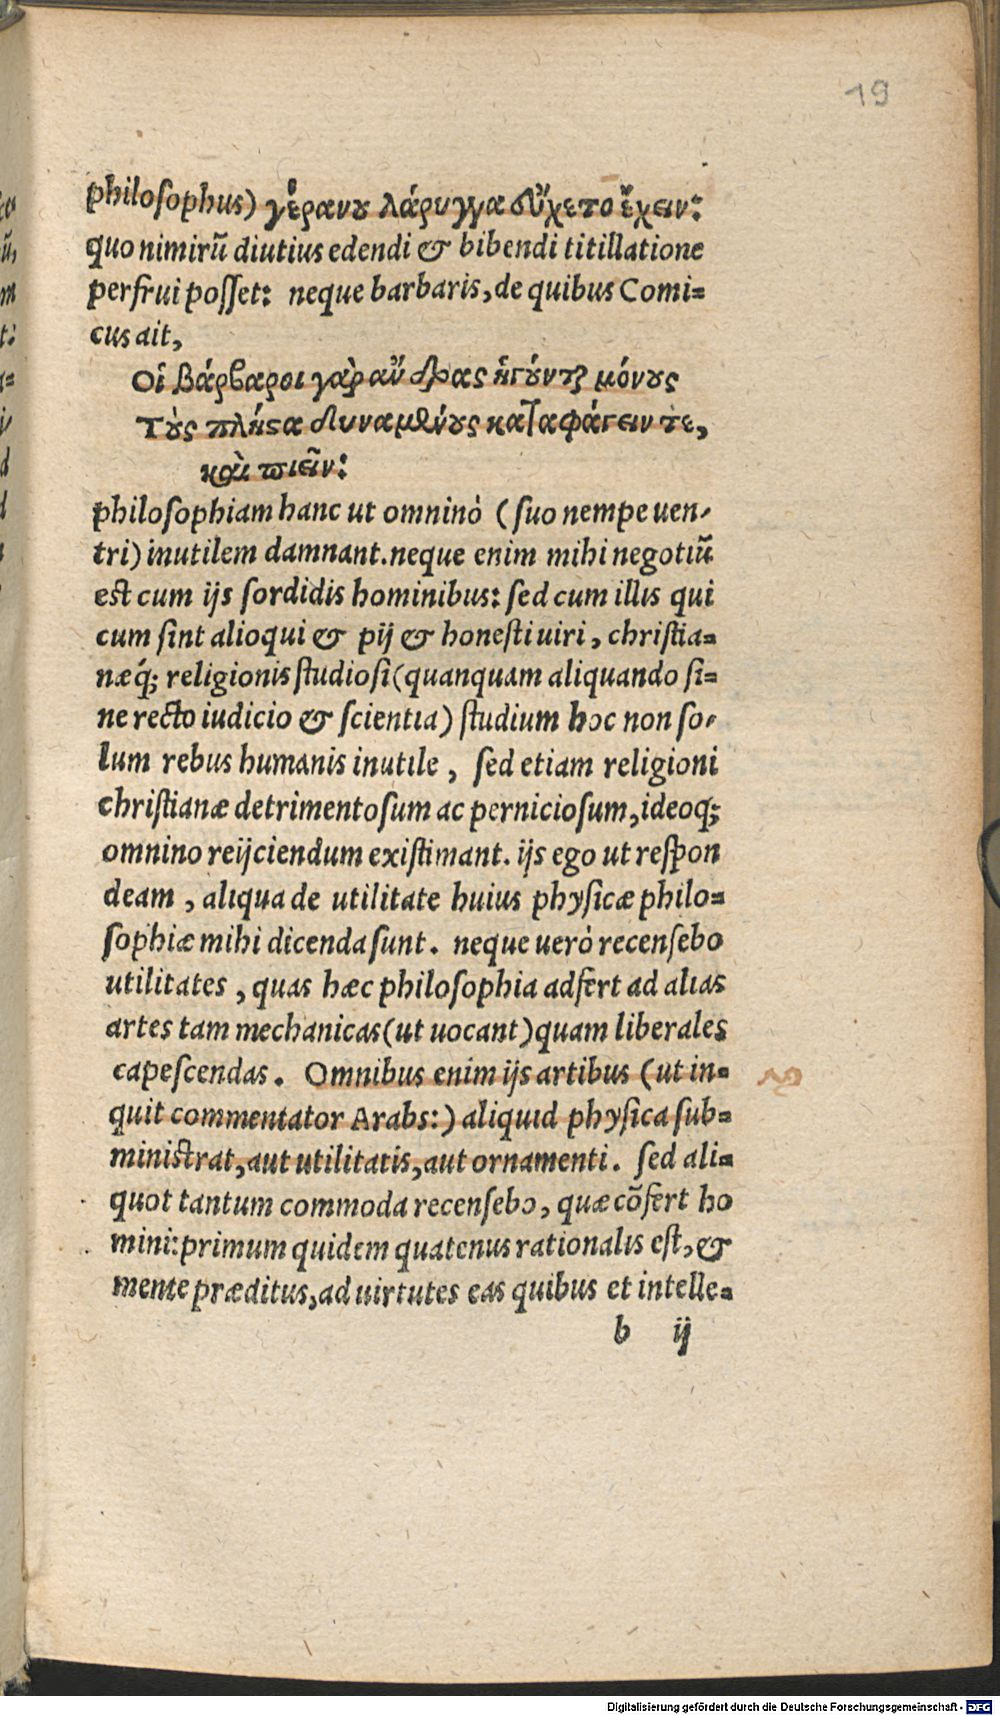 19
philosophus) γέρανου λάρυγγα εὔχετο ἔχειν:
quo nimirũ diutius edendi & bibendi titillatione
perfrui posset: neque barbaris, de quibus Comi=
cus ait,
Οἱ βάρβαροι γὰρ ἄνδρας ἡγοῦνται μόνους
Τοὺς πλῆστα δυναμένους καταφάγειν τε,
καὶ πιεῖν:
philosophiam hanc ut omninò (suo nempe uen-
tri) inutilem damnant. neque enim mihi negotiũ
est cum ijs sordidis hominibus: sed cum illis qui
cum sint alioqui & pij & honesti uiri, christia=
næq́; religionis studiosi (quanquam aliquando si=
ne recto iudicio & scientia) studium hoc non so-
lum rebus humanis inutile, sed etiam religioni
christianæ detrimentosum ac perniciosum, ideoq;
omnino reijciendum existimant. ijs ego ut respon
deam, aliqua de utilitate huius physicæ philo=
sophiæ mihi dicenda sunt. neque uerò recensebo
utilitates, quas hæc philosophia adfert ad alias
artes tam mechanicas (ut uocant) quam liberales
capescendas. Omnibus enim ijs artibus (ut in=
quit commentator Arabs:) aliquid physica sub=
ministrat, aut utilitatis, aut ornamenti. sed ali=
quot tantum commoda recensebo, quæ cõfert ho
mini: primum quidem quatenus rationalis est, &
mente præditus, ad uirtutes eas quibus et intelle=
b ij
Digitalisierung gefördert durch die Deutsche Forschungsgemeinschaft - DFG